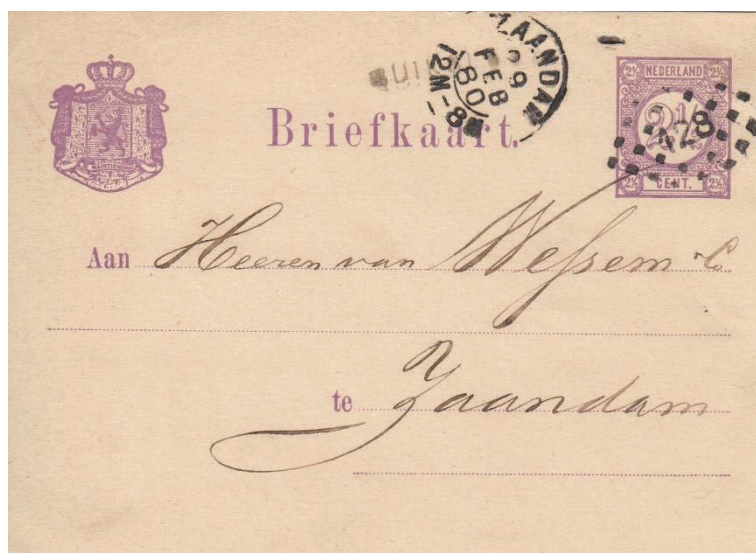 ZAANDAM
29
FEB
80
12M-8
2½ NEDERLAND 2½
2½
478
2½ CENT. 2½
Briefkaart.
Aan Heeren van Wessem & C
te Zaandam